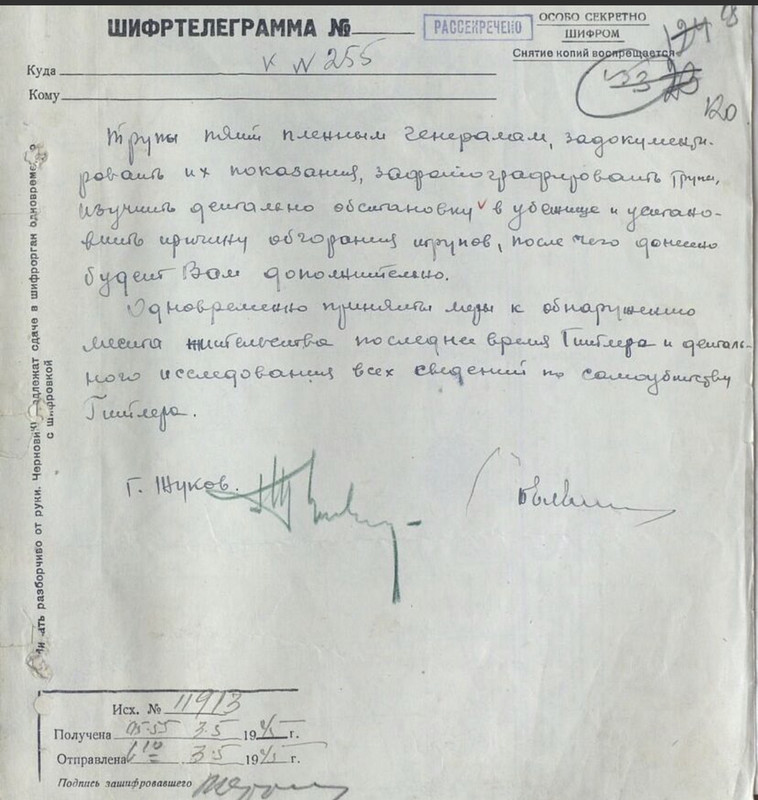 ШИФРТЕЛЕГРАММА №
РАССЕКРЕЧЕНО
ОСОБО СЕКРЕТНО
ШИФРОМ
Снятие копий воспрещается
К N 255
Куда
Кому
120
трупы пяти пленным генералам, задокументи-
ровать их показания, зафотографировать трупы,
изучить детально обстановку в убежище и устано-
вить причину обгорания трупов, после чего донесено
будет Вам дополнительно.
Одновременно приняты меры к обнаружению
места жительства последнее время Гитлера и деталь-
ного исследования всех сведений по самоубийству
Гитлера.
Г. Жуков.
разборчиво от руки. сдаче в шифрорган
с шифровкой
Исх. № 11913
Получена 05-55 3.5 1945 г.
Отправлена 6 10 3.5 1945 г.
Подпись зашифровавшего